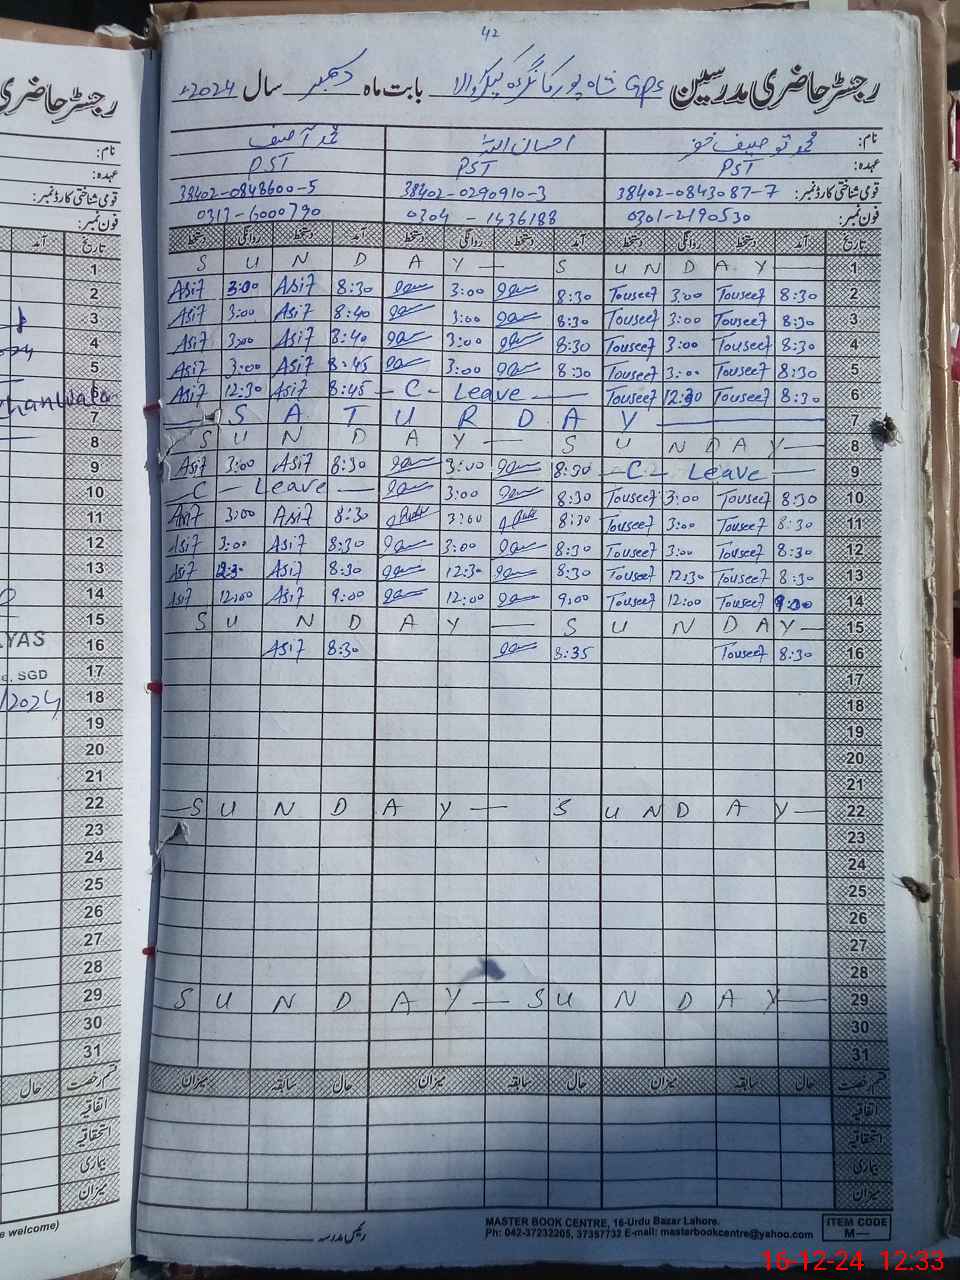 42
رجسٹر حاضری مدرسین GPS شاہ پور کانگڑہ بابت ماہ دسمبر سال 2024ء
نام: محمد توصیف احسان اللہ محمد آصف
عہدہ: PST PST PST
قومی شناختی کارڈ نمبر: 38402-0843087-7 38402-0290910-3 38402-0848600-5
فون نمبر: 0301-2190530 0304-1436188 0313-6000790
تاریخ آمد دستخط روانگی دستخط آمد دستخط روانگی دستخط آمد دستخط روانگی دستخط
S U N D A Y — S U N D A Y — 1
Asif 3:00 Asif 8:30 3:00 8:30 Touseef 3:00 Touseef 8:30 2
Asif 3:00 Asif 8:40 3:00 8:30 Touseef 3:00 Touseef 8:30 3
Asif 3:00 Asif 8:40 3:00 8:30 Touseef 3:00 Touseef 8:30 4
Asif 3:00 Asif 8:45 3:00 8:30 Touseef 3:00 Touseef 8:30 5
Asif 12:30 Asif 8:45 — C — Leave — Touseef 12:30 Touseef 8:30 6
— S A T U R D A Y — 7
S U N D A Y — S U N D A Y — 8
Asif 3:00 Asif 8:30 3:00 8:30 — C — Leave — 9
— C — Leave — 3:00 8:30 Touseef 3:00 Touseef 8:30 10
Asif 3:00 Asif 8:30 3:00 8:30 Touseef 3:00 Touseef 8:30 11
Asif 3:00 Asif 8:30 3:00 8:30 Touseef 3:00 Touseef 8:30 12
Asif 12:30 Asif 8:30 12:30 8:30 Touseef 12:30 Touseef 8:30 13
Asif 12:00 Asif 9:00 12:00 9:00 Touseef 12:00 Touseef 9:00 14
S U N D A Y — S U N D A Y — 15
Asif 8:30 8:35 Touseef 8:30 16
17
18
19
20
21
— S U N D A Y — S U N D A Y — 22
23
24
25
26
27
28
S U N D A Y — S U N D A Y — 29
30
31
قسم رخصت حال سابقہ میزان حال سابقہ میزان حال سابقہ میزان
اتفاقیہ
استحقاقیہ
بیماری
میزان
رئیس مدرسہ
MASTER BOOK CENTRE, 16-Urdu Bazar Lahore.
Ph: 042-37232205, 37357732 E-mail: masterbookcentre@yahoo.com
ITEM CODE
M—
رجسٹر حاضری
نام:
عہدہ:
قومی شناختی کارڈ نمبر:
فون نمبر:
آمد تاریخ
1
2
3
4
5
6
7
8
9
10
11
12
13
14
15
YAS 16
SGD 17
/2024 18
19
20
21
22
23
24
25
26
27
28
29
30
31
قسم رخصت حال
اتفاقیہ
استحقاقیہ
بیماری
میزان
welcome)
16-12-24 12:33